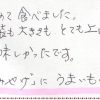 めて食べました。
も大きさもとても上
味しかったです。
みやげにうまいも